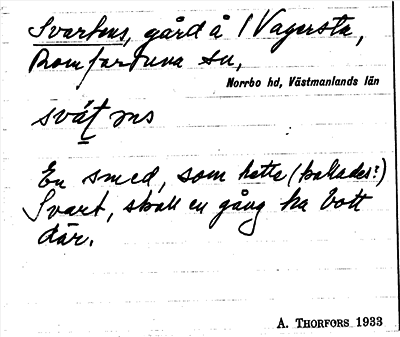 Svartens, gård å 1 Vagersta,
Romfartuna sn,
Norrbo hd, Västmanlands län
svát ns
En smed, som hette (kallades?)
Svart, skall en gång ha bott
där.
A. THORFORS 1933